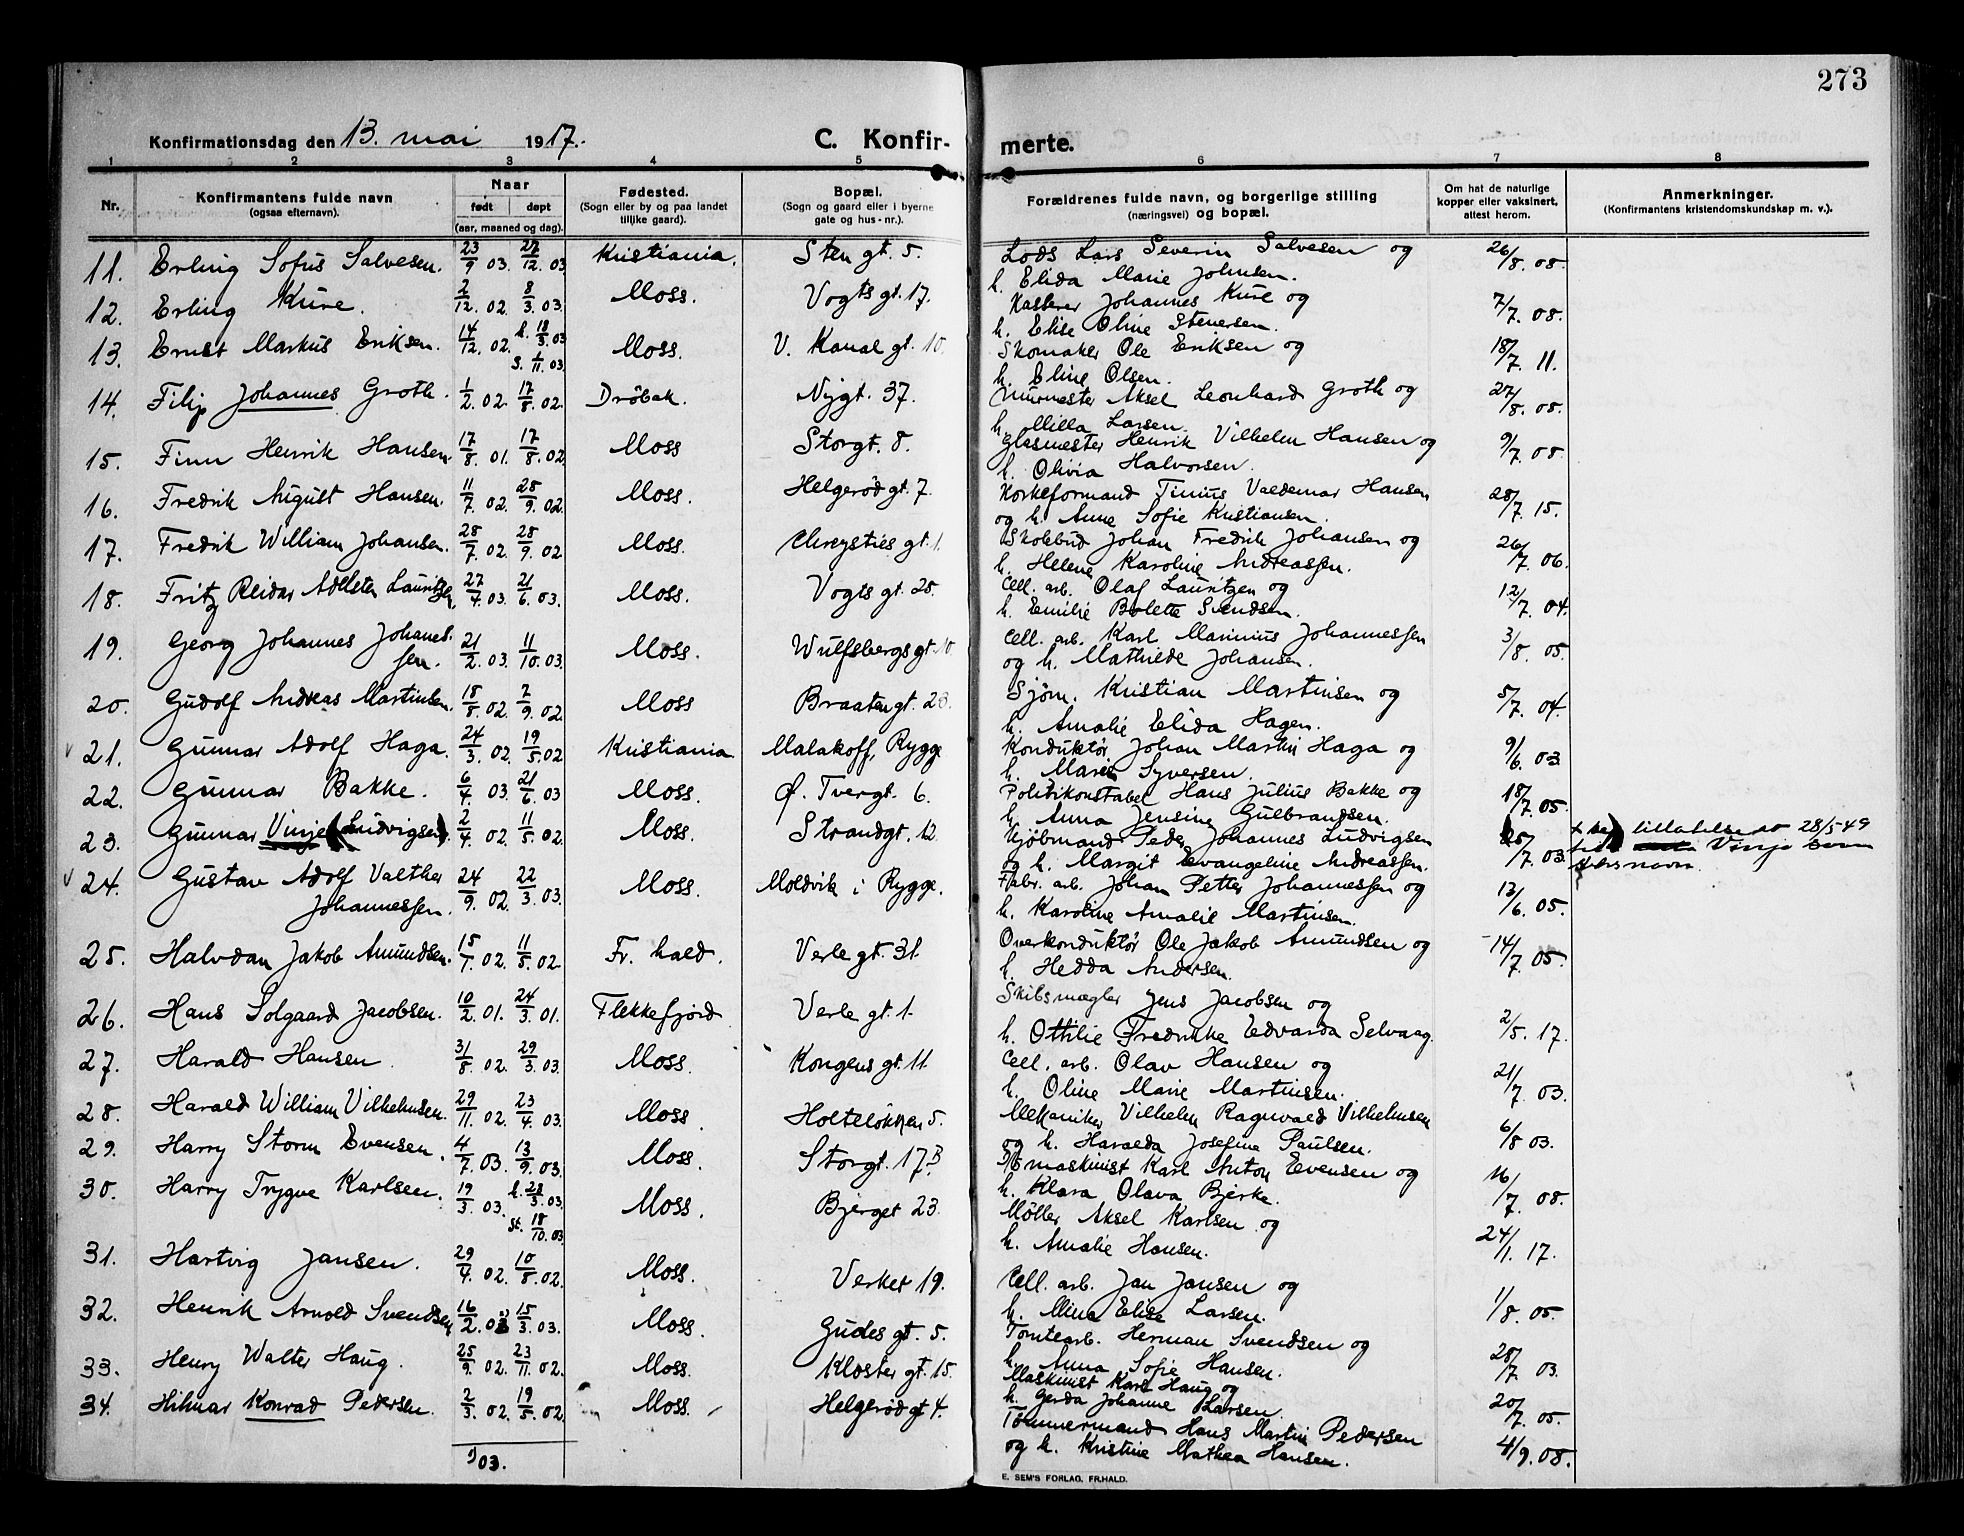 273
Konfirmationsdag den 13. mai 1917.
C. Konfirmerte.
1 2 3 4 5 6 7 8
Nr.
Konfirmantens fulde navn
(ogsaa efternavn).
Naar
født døpt
(aar, maaned og dag).
Fødested.
(Sogn eller by og paa landet
tillike gaard).
Bopæl.
(Sogn og gaard eller i byerne
gate og hus-nr.).
Forældrenes fulde navn, og borgerlige stilling
(næringsvei) og bopæl.
Om hat de naturlige
kopper eller vaksinert,
attest herom.
Anmerkninger.
(Konfirmantens kristendomskundskap m. v.).
11. Erling Sofus Salvesen. 23/9 03. 27/12. 03 Kristiania. Sten gt. 5. Lods Lars Severin Salvesen og 26/8. 08.
h. Elida Marie Johnsen.
12. Erling Kure. 2/12. 02. 8/3. 03. Moss. Vogts gt. 17. Kasserer Johannes Kure og 7/7. 08.
h. Elise Oline Stenersen.
13. Ernst Markus Eriksen. 14/12. 02. h. 18/3. 03 Moss. V. Kanal gt. 10. Skomaker Ole Eriksen og 18/7. 11.
S. 1/11. 03.
h. Eline Olsen.
14. Filip Johannes Groth. 1/2. 02. 17/8. 02. Drøbak. Nygt. 37. Murmester Aksel Leonhard Groth og 27/8. 08.
h. Milla Larsen.
15. Finn Henrik Hansen 17/8. 01. 17/8. 02. Moss Storgt. 8. Glasmester Henrik Vilhelm Hansen og 9/7. 08
h. Olivia Halvorsen.
16. Fredrik August Hansen. 11/7. 02. 28/9. 02. Moss. Helgerød gt. 7. Korkeformand Tinius Valdemar Hansen 28/7. 15.
og h. Anne Sofie Kristiansen.
17. Fredrik William Johansen. 28/7. 02. 28/9. 02 Moss. Chrysties gt. 1. Skolebud Johan Fredrik Johansen og 26/7. 06.
h. Helene Karoline Andreassen.
18. Fritz Reidar Adelsten Lauritzen. 27/4. 03. 21/6. 03. Moss. Vogts gt. 28. Cell. arb. Olaf Lauritzen og 12/7. 04.
h. Emilie Bolette Svendsen.
19. Georg Johannes Johanes- 21/2. 03. 11/10. 03. Moss. Wulfsbergs gt. 10 Cell. arb. Karl Marinius Johannessen 3/8. 05.
sen.
og h. Mathilde Johansen.
20. Gudolf Andreas Martinsen. 18/8. 02. 7/9. 02. Moss Braaten gt. 23. Sjøm. Kristian Martinsen og 5/7. 04.
h. Amalie Elida Hagen.
21. Gunnar Adolf Haga. 24/3. 02. 19/5. 02 Kristiania. Malakoff, Rygge Konduktør Johan Martin Haga og 9/6. 03
h. Marie Syversen.
22. Gunnar Bakke. 6/4. 03. 21/6. 03 Moss. Ø. Tvergt. 6. Politikonstabel Hans Julius Bakke og 18/7. 05.
h. Anna Jensine Gulbrandsen.
23. Gunnar Vinje (Ludvigsen) 2/4. 02. 11/5. 02. Moss. Strandgt. 12. Kjøbmand Peder Johannes Ludvigsen 25/7. 03.
og h. Margit Evangeline Andreassen.
tillatelse 28/5-49
Vinje som
24. Gustav Adolf Valther 24/9. 02. 22/3. 03. Moss. Moldvik i Rygge. Fabr. arb. Johan Petter Johannessen og 13/6. 05.
Johannessen.
h. Karoline Amalie Martinsen.
25. Halvdan Jakob Amundsen. 15/1. 02. 11/5. 02. Fr. hald. Verle gt. 31. Overkonduktør Ole Jakob Amundsen og 14/7. 05.
h. Hedda Andersen.
26. Hans Solgaard Jacobsen. 10/2. 01. 24/3. 01. Flekkefjord Verle gt. 1. Skibsmægler Jens Jacobsen og 2/5. 17.
h. Ottilie Fredrikke Edvarda Selvaag.
27. Harald Hansen. 31/8. 02. 29/3. 03. Moss. Kongens gt. 11. Cell. arb. Olav Hansen og 21/7. 03.
h. Oline Marie Martinsen.
28. Harald William Vilhelmsen. 29/11. 02. 23/4. 03. Moss. Holteløkken 5. Mekaniker Vilhelm Ragnvald Vilhelmsen 6/8 03.
og h. Haralda Josefine Paulsen.
29. Harry Storm Evensen. 4/7. 03. 13/9. 03. Moss. Storgt. 17B. maskinist Karl Anton Evensen og 16/7. 08.
h. Klara Olava Bjerke.
30. Harry Trygve Karlsen. 19/3. 03. h. 28/3. 03. Moss. Bjerget 23. Møller Aksel Karlsen og 24/1. 17.
st. 18/10. 03.
h. Amalie Hansen.
31. Hartvig Jansen. 29/4. 02. 10/8. 02. Moss. Verket 19. Cell. arb. Jan Jansen og 1/8. 05.
h. Mina Elise Larsen.
32. Henrik Arnold Svendsen 16/2. 03 15/3. 03. Moss. Gudes gt. 5. Tomtearb. Herman Svendsen og 28/7 03.
h. Anna Sofie Hansen.
33. Henry Walter Haug. 25/9. 02. 23/11. 02. Moss. Kloster gt. 15. Maskinist Karl Haug og 20/7. 05.
h. Gerda Johanne Larsen.
34. Hilmar Konrad Pedersen. 2/3. 02. 19/5. 02. Moss. Helgerød gt 4. Tømmermand Hans Martin Pedersen 4/9. 08.
og h. Kristine Mathea Hansen.
03.
E. SEM'S FORLAG, FR.HALD.